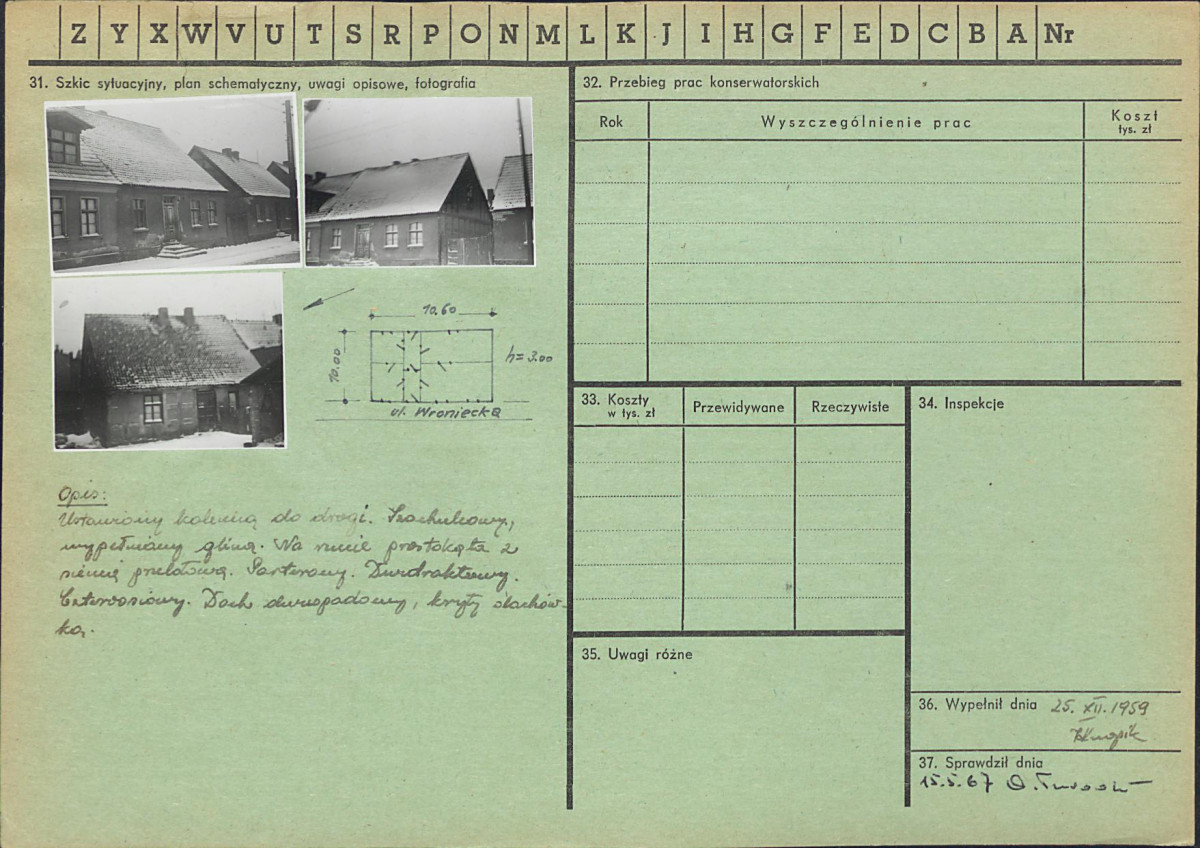 Z Y X W V U T S R P O N M L K J I H G F E D C B A Nr
31. Szkic sytuacyjny, plan schematyczny, uwagi opisowe, fotografia
10.60
10.00
h=3.00
ul. Wroniecka
Opis:
Ustawiony kalenicą do drogi. Szachulcowy,
wypełniony gliną. Na rzucie prostokąta z
sienią przelotową. Parterowy. Dwutraktowy.
Czteroosiowy. Dach dwuspadowy, kryty dachów-
ką.
32. Przebieg prac konserwatorskich
Rok
Wyszczególnienie prac
Koszt
tys. zł
33. Koszty
w tys. zł
Przewidywane
Rzeczywiste
34. Inspekcje
35. Uwagi różne
36. Wypełnił dnia 25. XII. 1959
37. Sprawdził dnia
15.5.67